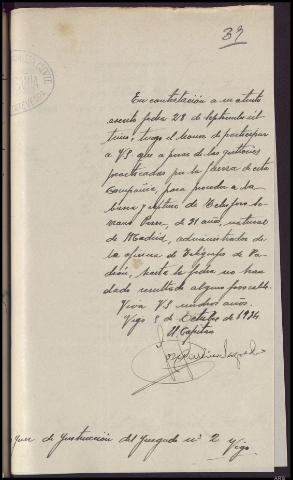 39
En contestación a su atento
escrito fecha 28 de septiembre úl-
timo, tengo el honor de participar
a VS que a pesar de las gestiones
practicadas por la fuerza de esta
Compañía, para proceder a la
busca y captura de Telesforo
Perez, de 31 años, natural
de Madrid, administrador de
la oficina de Telégrafos de
hasta la fecha no han
dado resultado alguno favorable.
Viva VS muchos años.
Vigo 8 de Octubre de 1934
El Capitan
Juez de Instrucción del Juzgado nº 2 Vigo